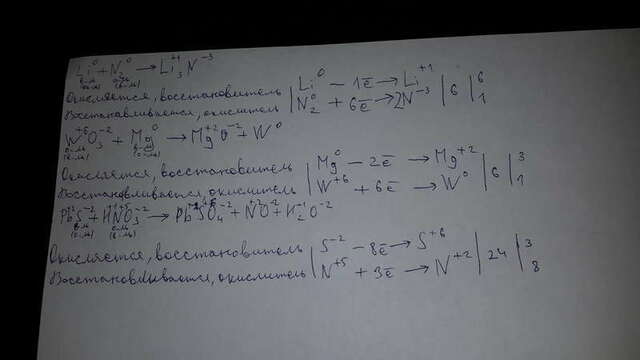 Li⁰ + N₂⁰ → Li₃⁺¹N⁻³
в-ль о-ль
Окисляется, восстановитель | Li⁰ − 1ē → Li⁺¹ | 6 | 6
Восстанавливается, окислитель | N₂⁰ + 6ē → 2N⁻³ | 1
W⁺⁶O₃⁻² + Mg⁰ → Mg⁺²O⁻² + W⁰
Окисляется, восстановитель | Mg⁰ − 2ē → Mg⁺² | 6 | 3
Восстанавливается, окислитель | W⁺⁶ + 6ē → W⁰ | 1
Pb⁺²S⁻² + H⁺¹N⁺⁵O₃⁻² → Pb⁺²S⁺⁶O₄⁻² + N⁺²O⁻² + H₂⁺¹O⁻²
Окисляется, восстановитель | S⁻² − 8ē → S⁺⁶ | 24 | 3
Восстанавливается, окислитель | N⁺⁵ + 3ē → N⁺² | 8